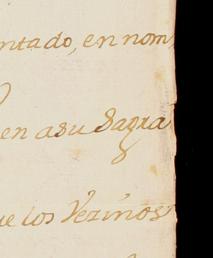 ntado, en nom
en a su Sagra
ue los Vezinos